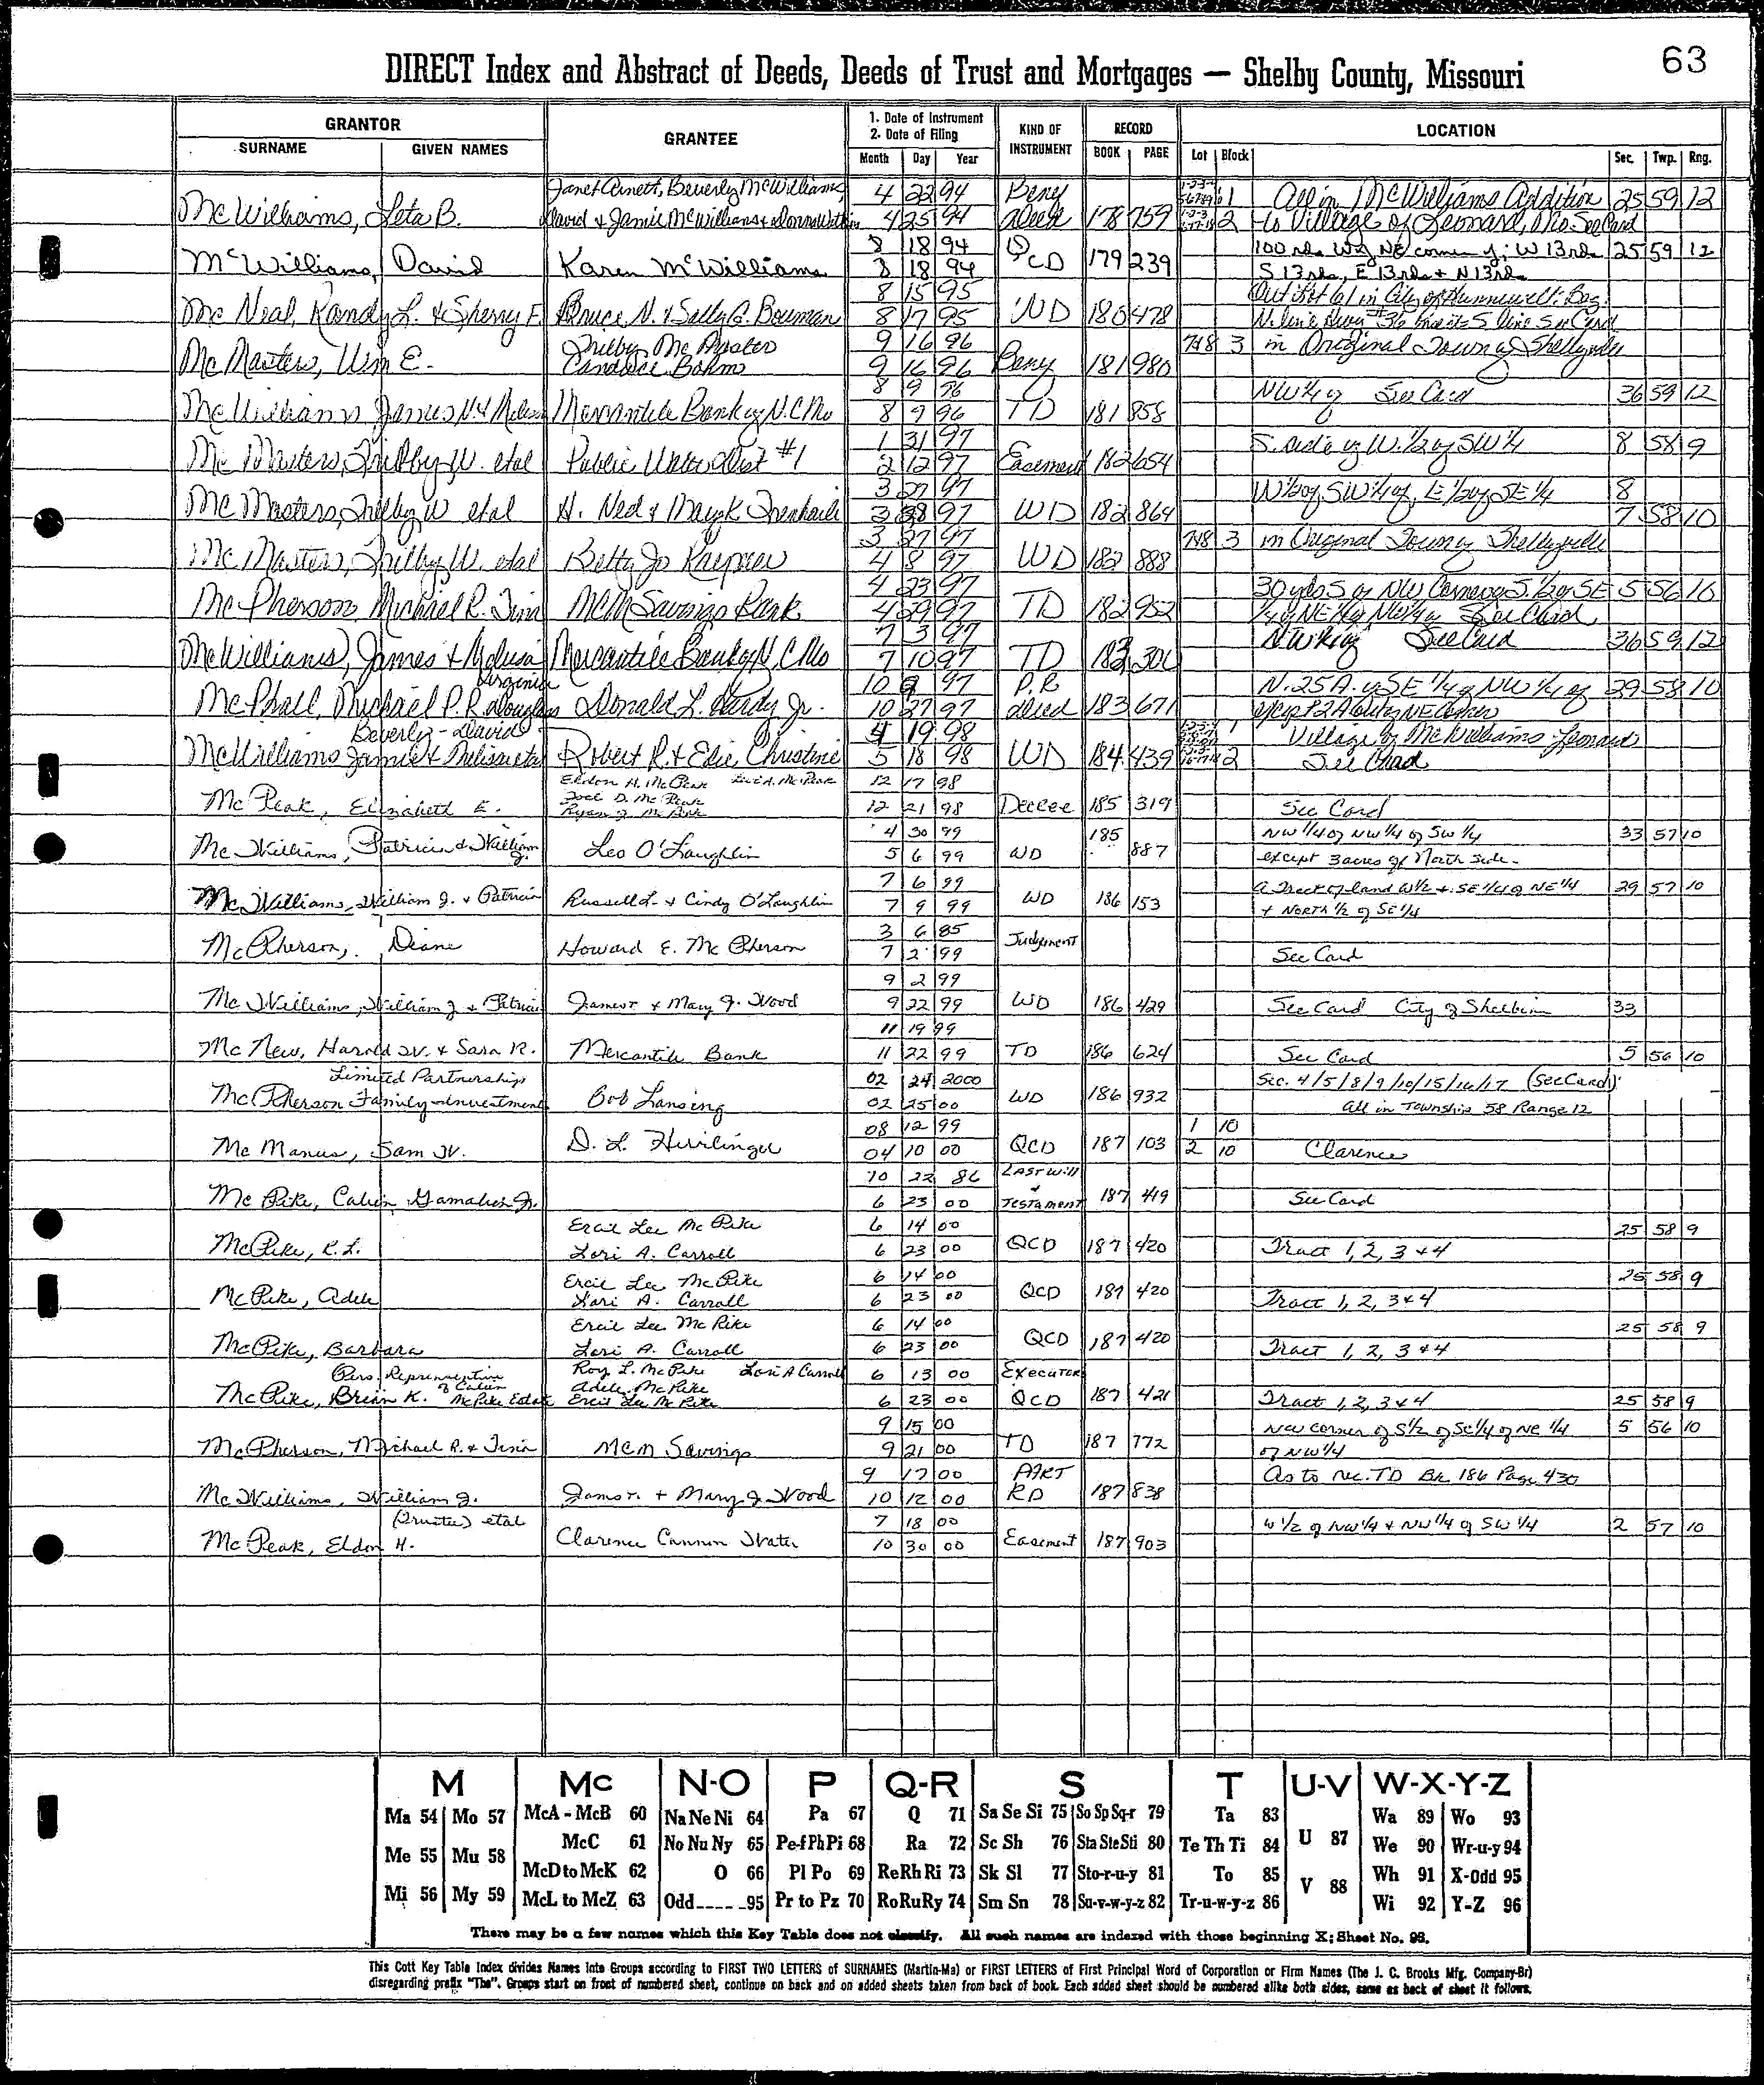 63
DIRECT Index and Abstract of Deeds, Deeds of Trust and Mortgages — Shelby County, Missouri
GRANTOR
SURNAME GIVEN NAMES
GRANTEE
1. Date of Instrument
2. Date of Filing
Month Day Year
KIND OF INSTRUMENT
RECORD
BOOK PAGE
LOCATION
Lot Block Sec. Twp. Rng.
Janet Arnett, Beverly McWilliams, 4 22 94 Beny 1 All in McWilliams Addition 25 59 12
McWilliams, Leta B. David & Jamie McWilliams & Donna 4 25 94 Deed 178 759 2 to Village of Leonard, Mo. See Card
8 18 94 100 rds W of NE corner of; W 13 rds 25 59 12
McWilliams, David Karen McWilliams 8 18 94 QCD 179 239 S 13 rds, E 13 rds & N 13 rds
8 15 95 Out Lot 61 in City of Hunnewell: Beg.
Mc Neal, Randy L. & Sherry F. Bruce N. & Sally A. Bouman 8 17 95 WD 180 478 N. line Hwy #36 S line See Card
Trilby McMaster 9 16 96 7&8 3 in Original Town of Shelbyville
Mc Masters, Wm E. Candace Bohms 9 16 96 Beny 181 980
8 9 96 NW 1/4 of See Card 36 59 12
McWilliams James N. & Melissa Mercantile Bank of N.C. Mo 8 9 96 TD 181 858
1 31 97 S. side of W. 1/2 of SW 1/4 8 58 9
Mc Masters, Trilby W. etal Public Water Dist #1 2 12 97 Easement 182 654
3 27 97 W 1/2 of SW 1/4 of, E 1/2 of SE 1/4 8
Mc Masters, Trilby W etal H. Ned & Mary K 3 28 97 WD 182 864 7 58 10
3 27 97 7&8 3 in Original Town of Shelbyville
Mc Masters, Trilby W. etal Betty Jo 4 8 97 WD 182 888
4 23 97 30 yds S of NW Corner of S. 1/2 of SE 5 56 10
McPherson Michael R. Tina MCM Savings Bank 4 29 97 TD 182 952 1/4 of NE 1/4 of NW 1/4 of See Card
7 3 97 NW 1/4 of See Card 36 59 12
McWilliams, James & Melissa Mercantile Bank of N.C. Mo 7 10 97 TD 183 300
Virginia 10 9 97 P.R. N. 25 A. of SE 1/4 of NW 1/4 of 29 58 10
McPhall, Michael P.R. Douglas Donald L. Hardy Jr. 10 27 97 deed 183 671 except 2 A out of NE Corner
Beverly - David 4 19 98 1 Village of McWilliams - Leonard
McWilliams Jamie & Melissa etal Robert R. & Edie Christine 5 18 98 WD 184 439 2 See Card
Eldon H. McPeak 12 17 98
Joel D. McPeak
McPeak, Elizabeth E. Ryan J. McPeak 12 21 98 Decree 185 319 See Card
4 30 99 185 NW 1/4 of NW 1/4 of SW 1/4 33 57 10
McWilliams, Patricia & William J. Leo O'Laughlin 5 6 99 WD 887 except 3 acres of North side
7 6 99 A Tract of land W 1/2 & SE 1/4 of NE 1/4 29 57 10
McWilliams, William J. & Patricia Russell L. & Cindy O'Laughlin 7 9 99 WD 186 153 & NORTH 1/2 of SE 1/4
3 6 85 Judgement
McPherson, Diane Howard E. McPherson 7 2 99 See Card
9 2 99
McWilliams, William J & Patricia James T. & Mary J. Wood 9 22 99 WD 186 429 See Card City of Shelbina 33
11 19 99
McNew, Harold W. & Sara R. Mercantile Bank 11 22 99 TD 186 624 See Card 5 56 10
Limited Partnership 02 24 2000 Sec. 4/5/8/9/10/15/16/17 (See Card)
McPherson Family Investment Bob Lansing 02 25 00 WD 186 932 all in Township 58 Range 12
08 12 99 1 10
McManus, Sam W. D. L. Heirlinger 04 10 00 QCD 187 103 2 10 Clarence
10 22 86 LAST Will
McPike, Calvin Gamaliel Jr. 6 23 00 & Testament 187 419 See Card
Ercil Lee McPike 6 14 00 25 58 9
McPike, R. L. Lori A. Carroll 6 23 00 QCD 187 420 Tract 1, 2, 3 & 4
Ercil Lee McPike 6 14 00 25 58 9
McPike, Adele Lori A. Carroll 6 23 00 QCD 187 420 Tract 1, 2, 3 & 4
Ercil Lee McPike 6 14 00 25 58 9
McPike, Barbara Lori A. Carroll 6 23 00 QCD 187 420 Tract 1, 2, 3 & 4
Pers. Representative Roy L. McPike Lori A Carroll 6 13 00 Executor
of Calvin Adele McPike
McPike, Brian K. McPike Estate Ercil Lee McPike 6 23 00 QCD 187 421 Tract 1, 2, 3 & 4 25 58 9
9 15 00 NW corner of S 1/2 of SE 1/4 of NE 1/4 5 56 10
McPherson, Michael R. & Tina MCM Savings 9 21 00 TD 187 772 of NW 1/4
9 17 00 PART As to rec. TD Bk 186 Page 430
McWilliams, William J. James T. & Mary J Wood 10 12 00 RD 187 838
(Trustee) etal 7 18 00 W 1/2 of NW 1/4 & NW 1/4 of SW 1/4 2 57 10
McPeak, Eldon H. Clarence Cannon Water 10 30 00 Easement 187 903
M Mc N-O P Q-R S T U-V W-X-Y-Z
Ma 54 Mo 57 McA - McB 60 Na Ne Ni 64 Pa 67 Q 71 Sa Se Si 75 So Sp Sq-r 79 Ta 83 U 87 Wa 89 Wo 93
Me 55 Mu 58 McC 61 No Nu Ny 65 Pe-f Ph Pi 68 Ra 72 Sc Sh 76 Sta Ste Sti 80 Te Th Ti 84 We 90 Wr-u-y 94
McD to McK 62 O 66 Pl Po 69 Re Rh Ri 73 Sk Sl 77 Sto-r-u-y 81 To 85 V 88 Wh 91 X-Odd 95
Mi 56 My 59 McL to McZ 63 Odd 95 Pr to Pz 70 Ro Ru Ry 74 Sm Sn 78 Su-v-w-y-z 82 Tr-u-w-y-z 86 Wi 92 Y-Z 96
There may be a few names which this Key Table does not classify. All such names are indexed with those beginning X; Sheet No. 95.
This Cott Key Table Index divides Names into Groups according to FIRST TWO LETTERS of SURNAMES (Martin-Ma) or FIRST LETTERS of First Principal Word of Corporation or Firm Names (The J. C. Brooks Mfg. Company-Br)
disregarding prefix "The". Groups start on front of numbered sheet, continue on back and on added sheets taken from back of book. Each added sheet should be numbered alike both sides, same as back of sheet it follows.